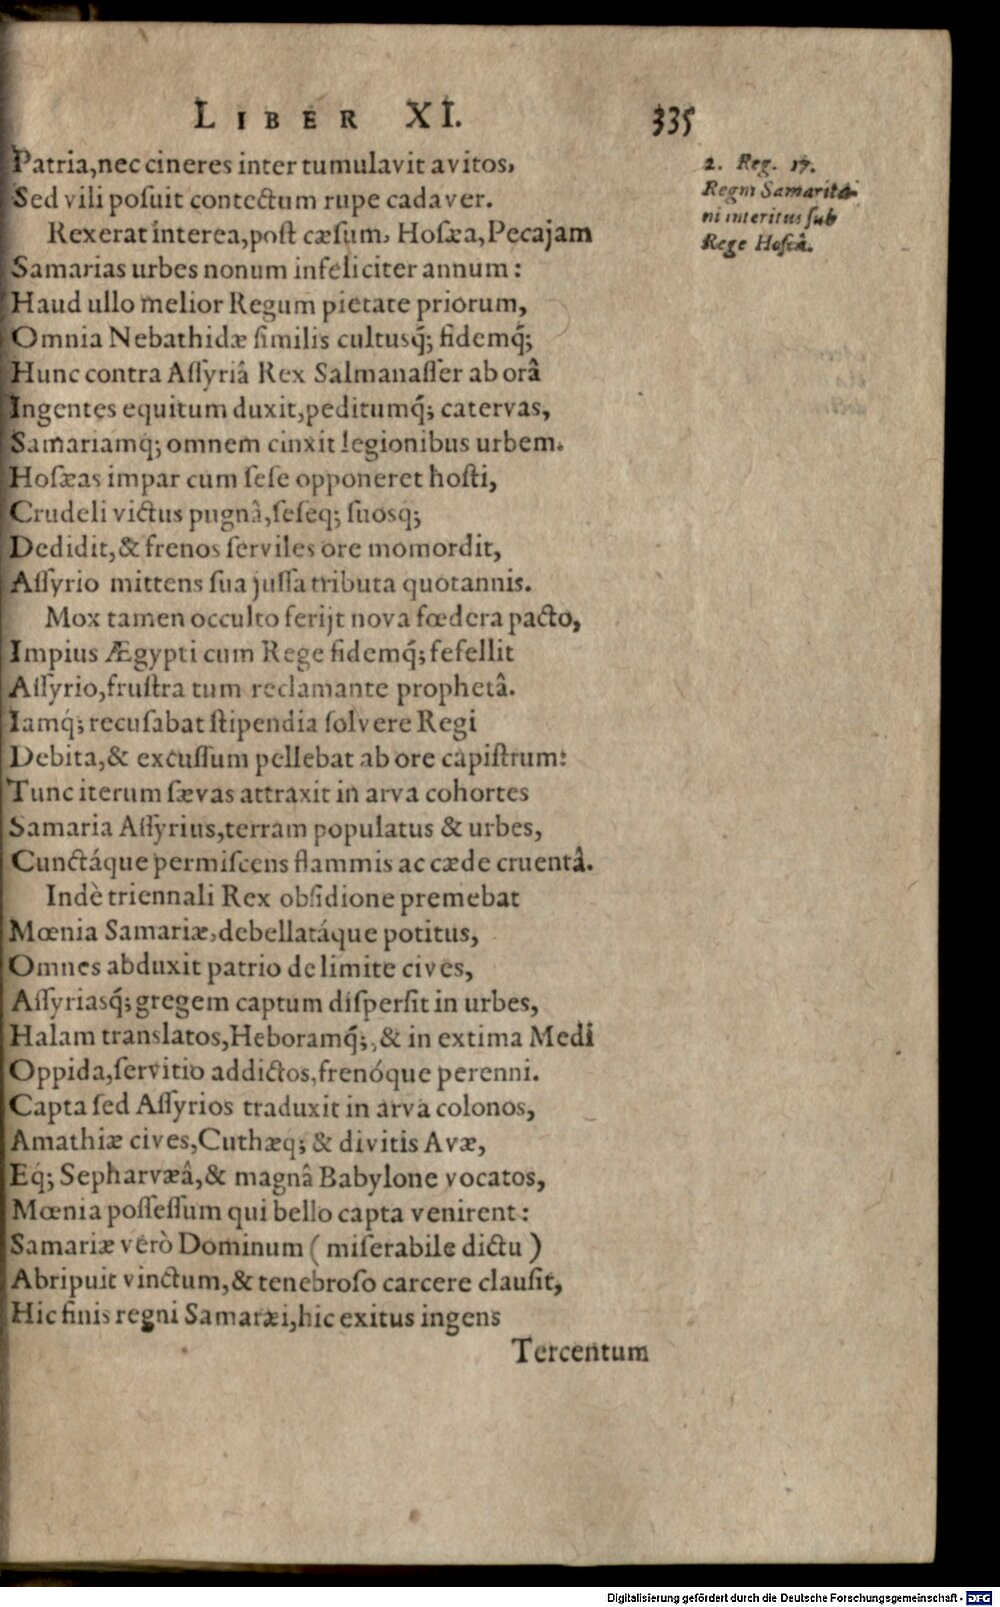 LIBER XI. 335
Patria, nec cineres inter tumulavit avitos,
Sed vili poſuit contectum rupe cadaver.
Rexerat interea, poſt cæſum, Hoſæa, Pecajam
Samarias urbes nonum infeliciter annum:
Haud ullo melior Regum pietate priorum,
Omnia Nebathidæ ſimilis cultusq́; fidemq́;
Hunc contra Aſſyriâ Rex Salmanaſſer ab orâ
Ingentes equitum duxit, peditumq́; catervas,
Samariamq; omnem cinxit legionibus urbem.
Hoſæas impar cum ſeſe opponeret hoſti,
Crudeli victus pugnâ, ſeſeq; ſuosq;
Dedidit, & frenos ſerviles ore momordit,
Aſſyrio mittens ſua juſſa tributa quotannis.
Mox tamen occulto ferijt nova fœdera pacto,
Impius Ægypti cum Rege fidemq́; fefellit
Aſſyrio, fruſtra tum reclamante prophetâ.
Iamq́; recuſabat ſtipendia ſolvere Regi
Debita, & excuſſum pellebat ab ore capiſtrum:
Tunc iterum ſævas attraxit in arva cohortes
Samaria Aſſyrius, terram populatus & urbes,
Cunctáque permiſcens flammis ac cæde cruentâ.
Indè triennali Rex obſidione premebat
Mœnia Samariæ, debellatáque potitus,
Omnes abduxit patrio de limite cives,
Aſſyriasq́; gregem captum diſperſit in urbes,
Halam translatos, Heboramq́;, & in extima Medi
Oppida, ſervitio addictos, frenóque perenni.
Capta ſed Aſſyrios traduxit in arva colonos,
Amathiæ cives, Cuthæq; & divitis Avæ,
Eq́; Sepharvæâ, & magnâ Babylone vocatos,
Mœnia poſſeſſum qui bello capta venirent:
Samariæ verò Dominum (miſerabile dictu)
Abripuit vinctum, & tenebroſo carcere clauſit,
Hic finis regni Samaræi, hic exitus ingens
Tercentum
2. Reg. 17.
Regni Samarita-
ni interitus ſub
Rege Hoſeâ.
Digitalisierung gefördert durch die Deutsche Forschungsgemeinschaft - DFG